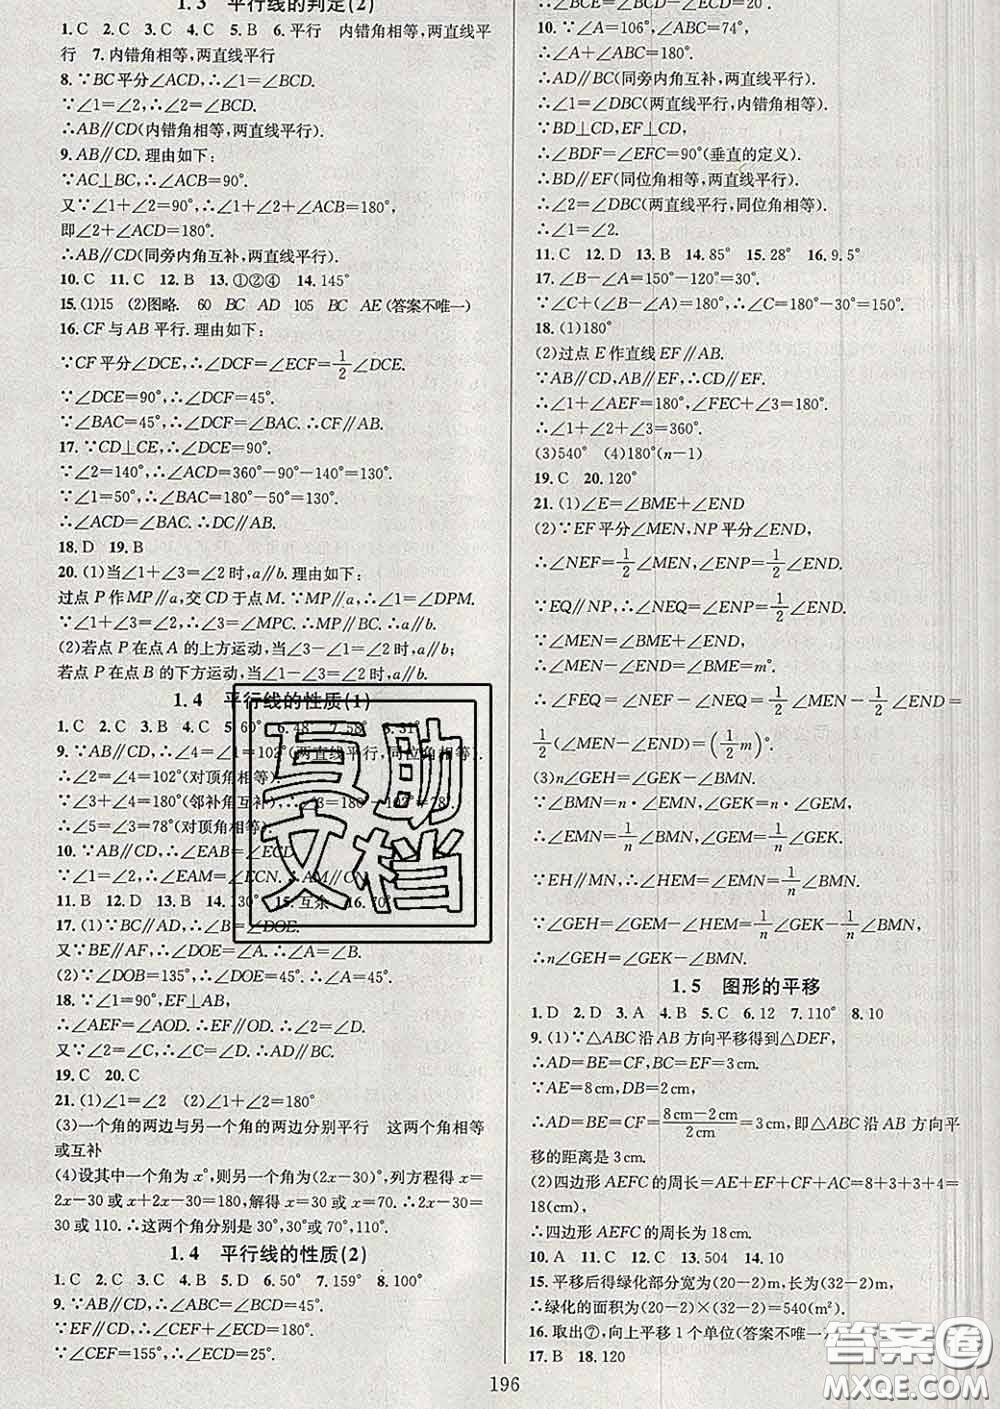 1.3 平行线的判定(2)
1.C 2.C 3.C 4.C 5.B 6.平行 内错角相等,两直线平
行 7.内错角相等,两直线平行
8.∵BC平分∠ACD,∴∠1=∠BCD.
∵∠1=∠2,∴∠2=∠BCD.
∴AB∥CD(内错角相等,两直线平行).
9.AB∥CD.理由如下:
∵AC⊥BC,∴∠ACB=90°.
又∵∠1+∠2=90°,∴∠1+∠2+∠ACB=180°,
即∠2+∠ACD=180°.
∴AB∥CD(同旁内角互补,两直线平行).
10.C 11.C 12.B 13.①②④ 14.145°
15.(1)15 (2)图略. 60 BC AD 105 BC AE(答案不唯一)
16.CF与AB平行.理由如下:
∵CF平分∠DCE,∴∠DCF=∠ECF=1/2∠DCE.
∵∠DCE=90°,∴∠DCF=45°.
∵∠BAC=45°,∴∠DCF=∠BAC.∴CF∥AB.
17.∵CD⊥CE,∴∠DCE=90°.
∵∠2=140°,∴∠ACD=360°-90°-140°=130°.
∵∠1=50°,∴∠BAC=180°-50°=130°.
∴∠ACD=∠BAC.∴DC∥AB.
18.D 19.B
20.(1)当∠1+∠3=∠2时,a∥b.理由如下:
过点P作MP∥a,交CD于点M.∵MP∥a,∴∠1=∠DPM.
∵∠1+∠3=∠2,∴∠3=∠MPC.∴MP∥b.∴a∥b.
(2)若点P在点A的上方运动,当∠3-∠1=∠2时,a∥b;
若点P在点B的下方运动,当∠1-∠3=∠2时,a∥b.
1.4 平行线的性质(1)
1.C 2.C 3.B 4.C 5.60° 6.48° 7.58° 8.31°
9.∵AB∥CD,∴∠4=∠1=102°(两直线平行,同位角相等).
∴∠2=∠4=102°(对顶角相等).
∵∠3+∠4=180°(邻补角互补),∴∠3=180°-102°=78°.
∴∠5=∠3=78°(对顶角相等).
10.∵AB∥CD,∴∠EAB=∠ECD.
∵∠1=∠2,∴∠EAM=∠ECN.∴AM∥CN.
11.B 12.D 13.B 14.130° 15.互余 16.70°
17.(1)∵BC∥AD,∴∠B=∠DOE.
又∵BE∥AF,∴∠DOE=∠A.∴∠A=∠B.
(2)∵∠DOB=135°,∴∠DOE=45°.∴∠A=45°.
18.∵∠1=90°,EF⊥AB,
∴∠AEF=∠AOD.∴EF∥OD.∴∠2=∠D.
又∵∠2=∠C,∴∠C=∠D.∴AD∥BC.
19.C 20.C
21.(1)∠1=∠2 (2)∠1+∠2=180°
(3)一个角的两边与另一个角的两边分别平行 这两个角相等
或互补
(4)设其中一个角为x°,则另一个角为(2x-30)°,列方程得x=
2x-30或x+2x-30=180,解得x=30或x=70.∴2x-30=
30或110.∴这两个角分别是30°,30°或70°,110°.
1.4 平行线的性质(2)
1.C 2.B 3.C 4.B 5.D 6.50° 7.159° 8.100°
9.∵AB∥CD,∴∠ABC=∠BCD=45°.
∵EF∥CD,∴∠CEF+∠ECD=180°.
∵∠CEF=155°,∴∠ECD=25°.
∴∠BCE=∠BCD-∠ECD=20°.
10.∵∠A=106°,∠ABC=74°,
∴∠A+∠ABC=180°.
∴AD∥BC(同旁内角互补,两直线平行).
∴∠1=∠DBC(两直线平行,内错角相等).
∵BD⊥CD,EF⊥CD,
∴∠BDF=∠EFC=90°(垂直的定义).
∴BD∥EF(同位角相等,两直线平行).
∴∠2=∠DBC(两直线平行,同位角相等).
∴∠1=∠2.
11.C 12.D 13.B 14.85° 15.28° 16.9.5°
17.∵∠B-∠A=150°-120°=30°.
∵∠C+(∠B-∠A)=180°,∴∠C=180°-30°=150°.
18.(1)180°
(2)过点E作直线EF∥AB.
∵AB∥CD,AB∥EF,∴CD∥EF.
∴∠1+∠AEF=180°,∠FEC+∠3=180°.
∴∠1+∠2+∠3=360°.
(3)540° (4)180°(n-1)
19.C 20.120°
21.(1)∠E=∠BME+∠END
(2)∵EF平分∠MEN,NP平分∠END,
∴∠NEF=1/2∠MEN,∠ENP=1/2∠END.
∵EQ∥NP,∴∠NEQ=∠ENP=1/2∠END.
∵∠MEN=∠BME+∠END,
∴∠MEN-∠END=∠BME=m°.
∴∠FEQ=∠NEF-∠NEQ=1/2∠MEN-1/2∠END=
1/2(∠MEN-∠END)=(1/2m)°.
(3)n∠GEH=∠GEK-∠BMN.
∵∠BMN=n·∠EMN,∠GEK=n·∠GEM,
∴∠EMN=1/n∠BMN,∠GEM=1/n∠GEK.
∵EH∥MN,∴∠HEM=∠EMN=1/n∠BMN.
∵∠GEH=∠GEM-∠HEM=1/n∠GEK-1/n∠BMN,
∴n∠GEH=∠GEK-∠BMN.
1.5 图形的平移
1.D 2.D 3.A 4.B 5.C 6.12 7.110° 8.10
9.(1)∵△ABC沿AB方向平移得到△DEF,
∴AD=BE=CF,BC=EF=3cm.
∵AE=8cm,DB=2cm,
∴AD=BE=CF=8cm-2cm/2cm=3cm,即△ABC沿AB方向平
移的距离是3cm.
(2)四边形AEFC的周长=AE+EF+CF+AC=8+3+3+4=
18(cm).
∴四边形AEFC的周长为18cm.
10.A 11.C 12.C 13.504 14.10
15.平移后得绿化部分宽为(20-2)m,长为(32-2)m,
∴绿化的面积为(20-2)×(32-2)=540(m²).
16.取出⑦,向上平移1个单位(答案不唯一)
17.B 18.120
196
互助
文档
答案圈
MXQE.COM